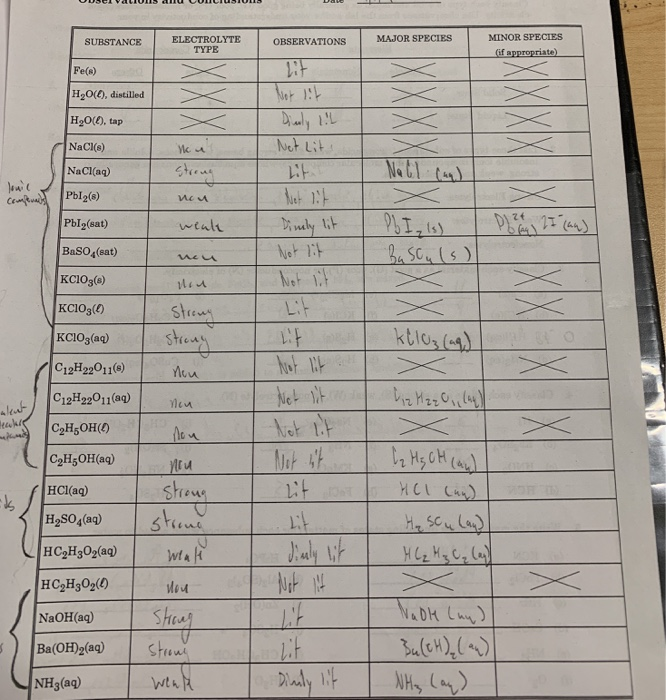 Observations and Conclusions Date
SUBSTANCE ELECTROLYTE TYPE OBSERVATIONS MAJOR SPECIES MINOR SPECIES (if appropriate)
Fe(s) Lit
H₂O(ℓ), distilled Not lit
H₂O(ℓ), tap Dimly lit
NaCl(s) non Not Lit
NaCl(aq) Strong Lit NaCl (aq)
Ionic compounds
PbI₂(s) non Not lit
PbI₂(sat) weak Dimely lit PbI₂(s) Pb²⁺(aq) 2I⁻(aq)
BaSO₄(sat) non Not lit BaSO₄(s)
KClO₃(s) non Not lit
KClO₃(ℓ) Strong Lit
KClO₃(aq) Strong Lit KClO₃(aq)
C₁₂H₂₂O₁₁(s) non Not lit
C₁₂H₂₂O₁₁(aq) non Not lit C₁₂H₂₂O₁₁(aq)
C₂H₅OH(ℓ) non Not lit
C₂H₅OH(aq) non Not lit C₂H₅OH(aq)
HCl(aq) Strong Lit HCl (aq)
H₂SO₄(aq) strong Lit H₂SO₄(aq)
HC₂H₃O₂(aq) weak Dimly lit HC₂H₃O₂(aq)
HC₂H₃O₂(ℓ) non Not lit
NaOH(aq) Strong Lit NaOH (aq)
Ba(OH)₂(aq) Strong Lit Ba(OH)₂(aq)
NH₃(aq) weak Dimly lit NH₃(aq)